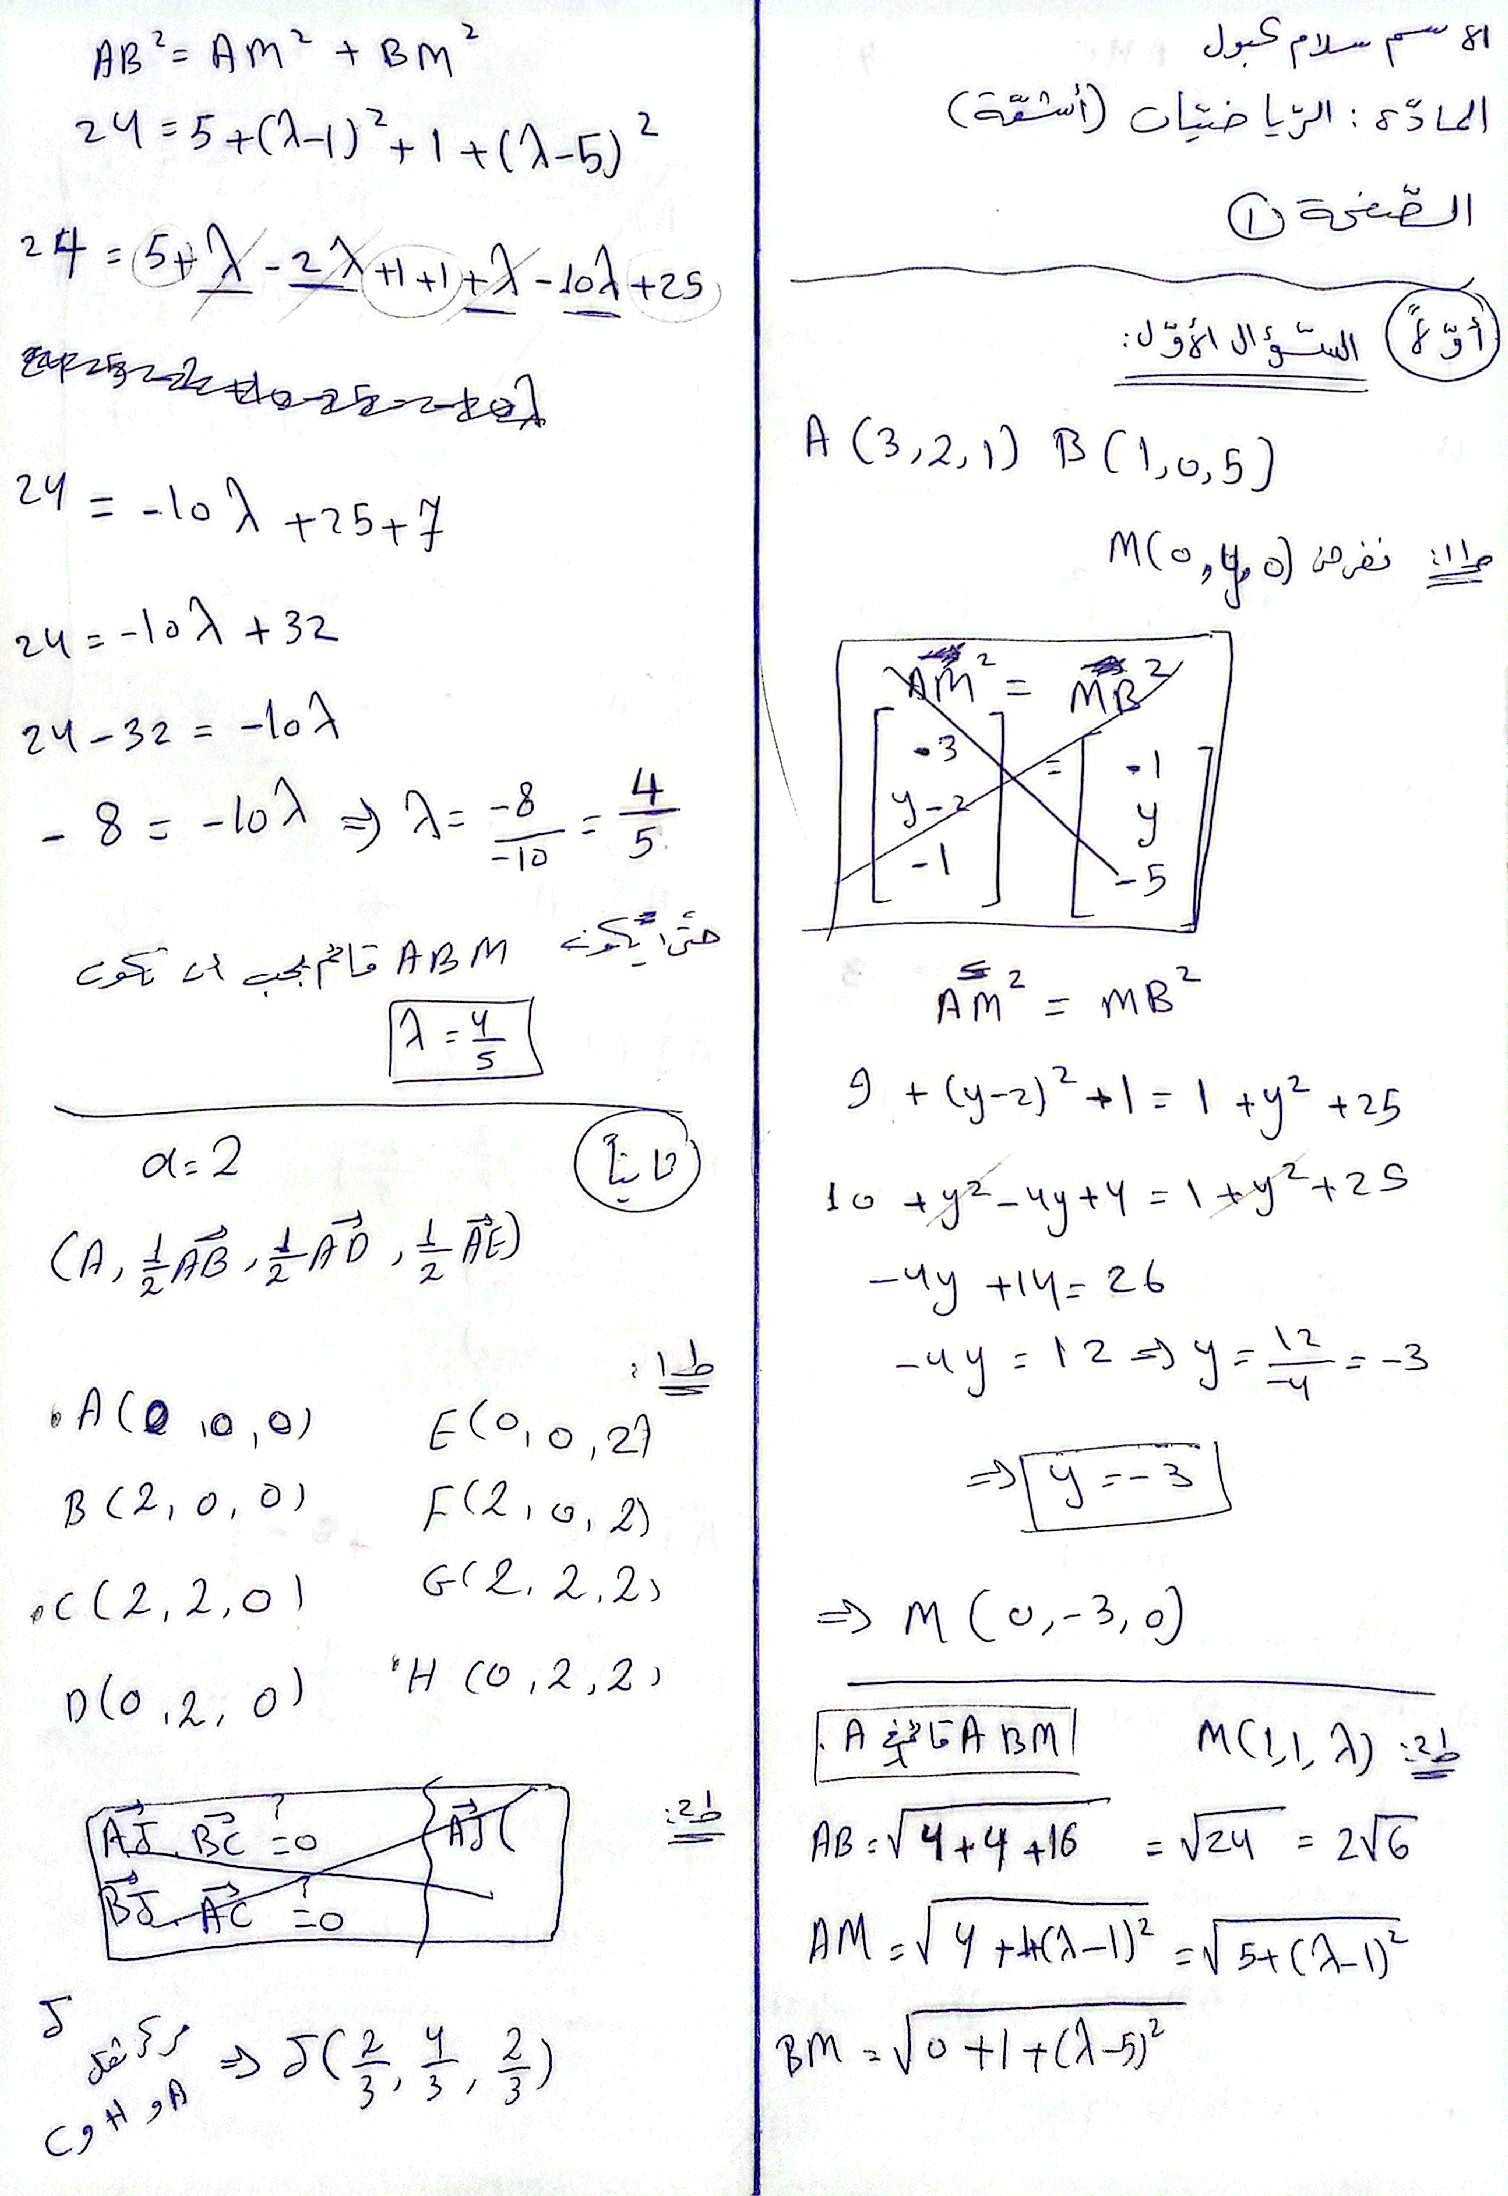 الاسم سلام كبول
المادّة : الرّياضيّات (أشعّة)
الصّفحة ①
أوّلاً السّؤال الأوّل:
A (3,2,1) B (1,0,5)
ط1: نفرض M(0,y,0)
AM² = MB²
[-3 y-2 -1] = [-1 y -5]
AM² = MB²
9 + (y-2)² + 1 = 1 + y² + 25
10 + y² - 4y + 4 = 1 + y² + 25
-4y + 14 = 26
-4y = 12 ⇒ y = 12/-4 = -3
⇒ y = -3
⇒ M (0,-3,0)
ط2: M(1,1,λ)
ABM قائم في A
AB = √(4+4+16) = √24 = 2√6
AM = √(4+1+(λ-1)²) = √(5+(λ-1)²)
BM = √(0+1+(λ-5)²)
AB² = AM² + BM²
24 = 5+(λ-1)² + 1 + (λ-5)²
24 = 5+λ-2λ+1+1+λ-10λ+25
24 = -10λ +25+7
24 = -10λ +32
24-32 = -10λ
-8 = -10λ ⇒ λ = -8/-10 = 4/5
حتّى يكون ABM قائم يجب ان تكون
λ = 4/5
ثانياً
a=2
(A, 1/2 AB⃗, 1/2 AD⃗, 1/2 AE⃗)
ط1:
A(0,0,0) E(0,0,2)
B(2,0,0) F(2,0,2)
C(2,2,0) G(2,2,2)
D(0,2,0) H(0,2,2)
ط2:
AJ⃗ . BC⃗ ?= 0 AJ⃗(
BJ⃗ . AC⃗ ?= 0
J
مركز ثقل ⇒ J(2/3, 4/3, 2/3)
A و H و C